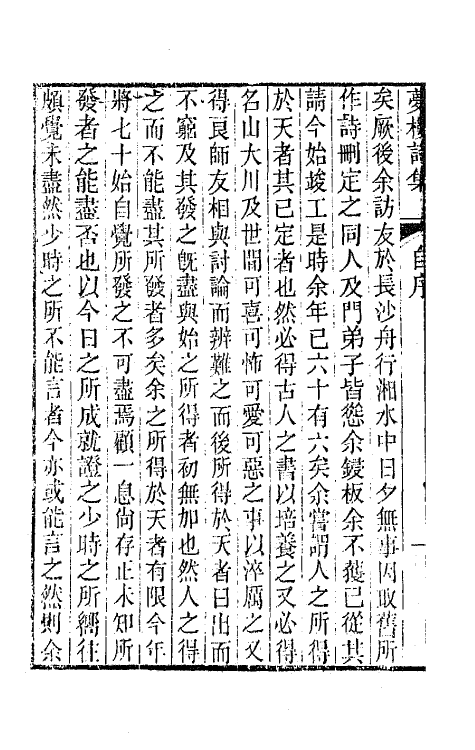 夢樓詩集
自序
一
矣厥後余訪友於長沙舟行湘水中日夕無事因取舊所
作詩刪定之同人及門弟子皆慫余鋟板余不獲已從其
請今始竣工是時余年已六十有六矣余嘗謂人之所得
於天者其已定者也然必得古人之書以培養之又必得
名山大川及世間可喜可怖可愛可惡之事以淬厲之又
得良師友相與討論而辨難之而後所得於天者日出而
不窮及其發之旣盡與始之所得者初無加也然人之得
之而不能盡其所發者多矣余之所得於天者有限今年
將七十始自覺所發之不可盡焉顧一息尙存止未知所
發者之能盡否也以今日之所成就證之少時之所嚮往
頗覺未盡然少時之所不能言者今亦或能言之然則余